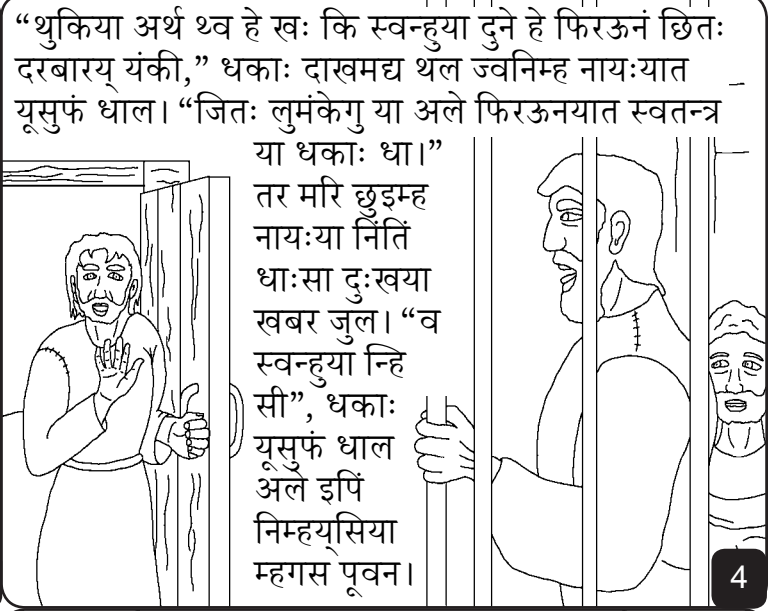 “थुकिया अर्थ थ्व हे खः कि स्वन्हुया दुने हे फिरऊनं छितः
दरबारय् यंकी,” धकाः दाखमद्य थल ज्वनिम्ह नायःयात
यूसुफं धाल। “जितः लुमंकेगु या अले फिरऊनयात स्वतन्त्र
या धकाः धा।”
तर मरि छुइम्ह
नायःया निंतिं
धाःसा दुःखया
खबर जुल। “व
स्वन्हुया न्हि
सी”, धकाः
यूसुफं धाल
अले इपिं
निम्हय्‌सिया
म्हगस पूवन।
4